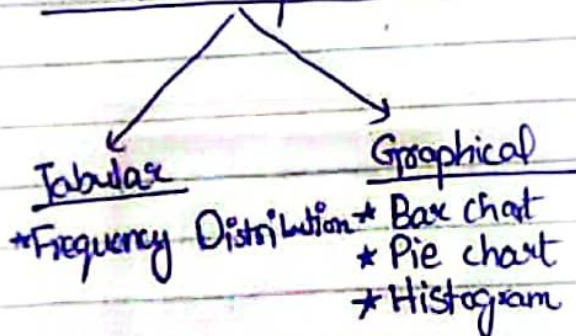 Tabular
*Frequency Distribution
Graphical
* Bar chart
* Pie chart
* Histogram